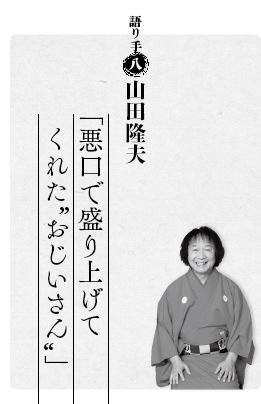 語り手
八
山田隆夫
「悪口で盛り上げて
くれた〝おじいさん〟」